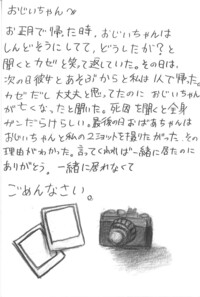 おじいちゃんへ
お正月で帰た時、おじいちゃんは
しんどそうにしてて、どうしたが？と
聞くとカゼと笑て返していた。その日は、
次の日彼女とあそぶからと私は1人で帰た。
カゼだし大丈夫と思ってたのに おじいちゃん
が亡くな、たと聞いた。死因を聞くと全身
ガンだらけらしい。最後の日おばあちゃんは
おじいちゃんと私の2ショットを撮りたがった。その
理由がわかった。言ってくれれば一緒に居たのに
ありがとう。一緒に居れなくて
ごめんなさい。